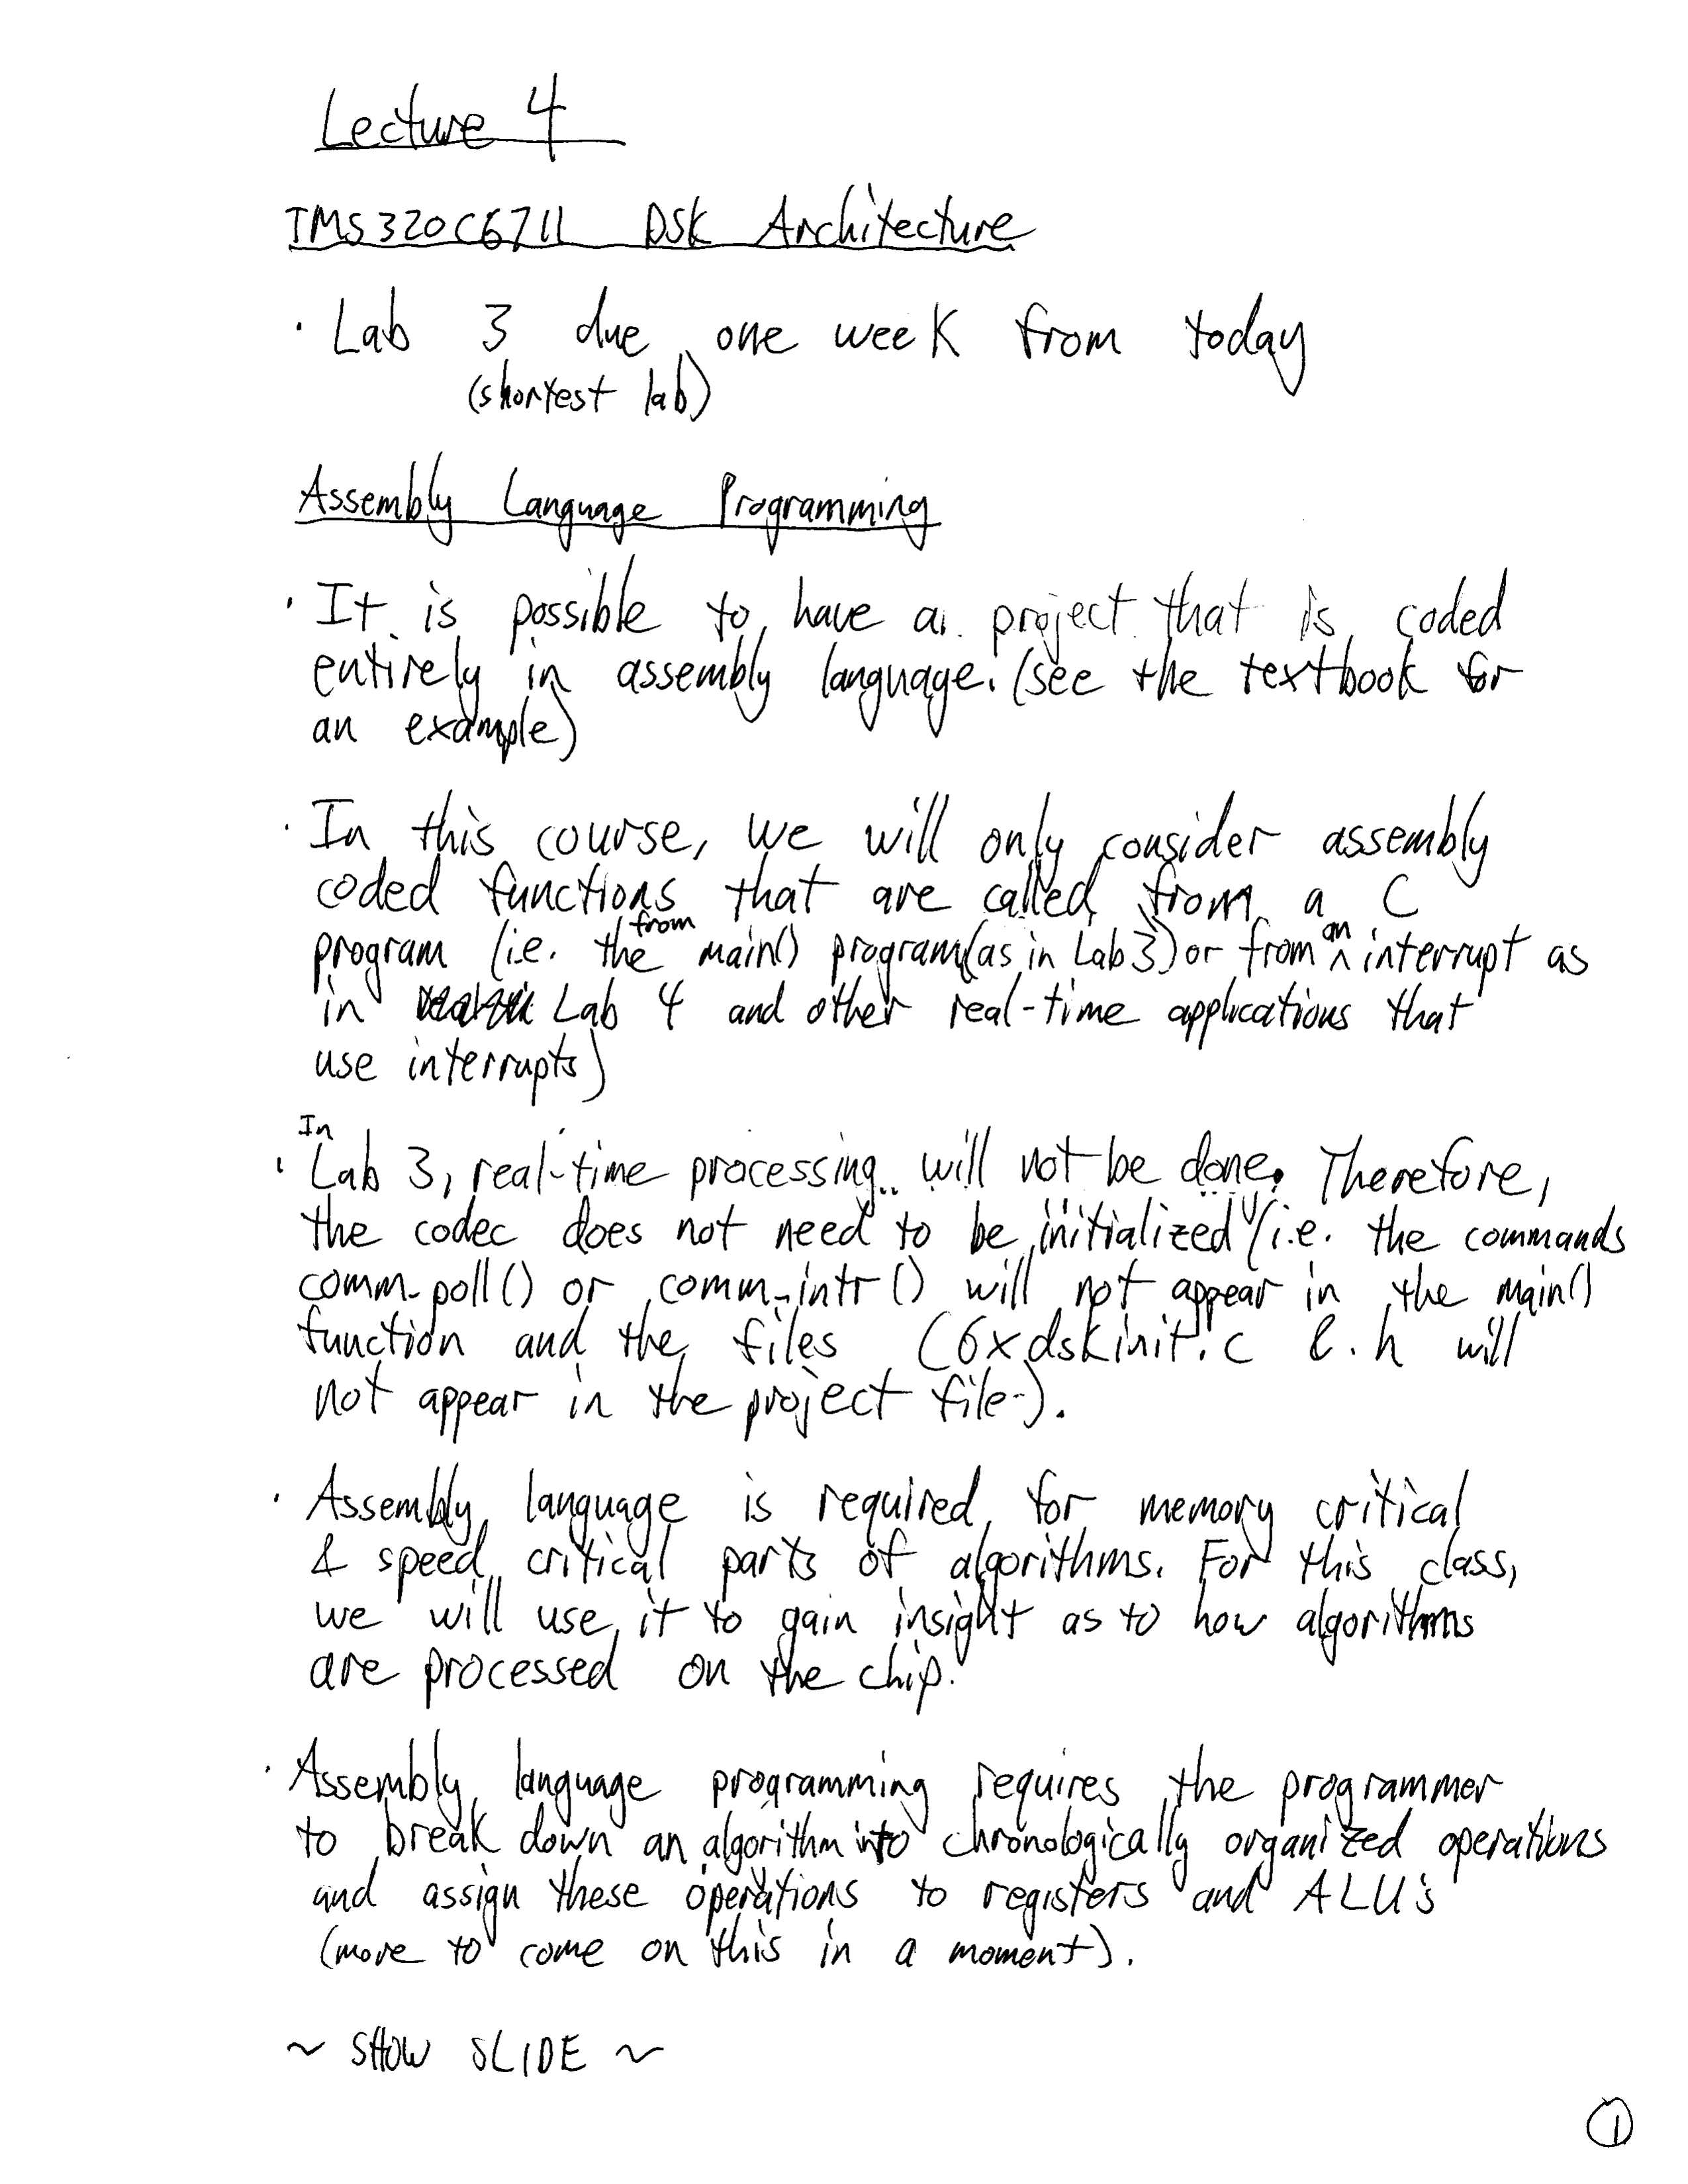 Lecture 4
TMS320C6711 DSK Architecture
· Lab 3 due one week from today
(shortest lab)
Assembly Language Programming
· It is possible to have a project that is coded
entirely in assembly language. (see the textbook for
an example)
· In this course, we will only consider assembly
coded functions that are called from a C
program (i.e. the from main() program (as in Lab 3) or from an interrupt as
in Lab 4 and other real-time applications that
use interrupts)
· In Lab 3, real-time processing will not be done. Therefore,
the codec does not need to be initialized (i.e. the commands
comm_poll() or comm_intr() will not appear in the main()
function and the files C6xdskinit.c & .h will
not appear in the project file).
· Assembly language is required for memory critical
& speed critical parts of algorithms. For this class,
we will use it to gain insight as to how algorithms
are processed on the chip.
· Assembly language programming requires the programmer
to break down an algorithm into chronologically organized operations
and assign these operations to registers and ALU's
(more to come on this in a moment).
~ SHOW SLIDE ~
1